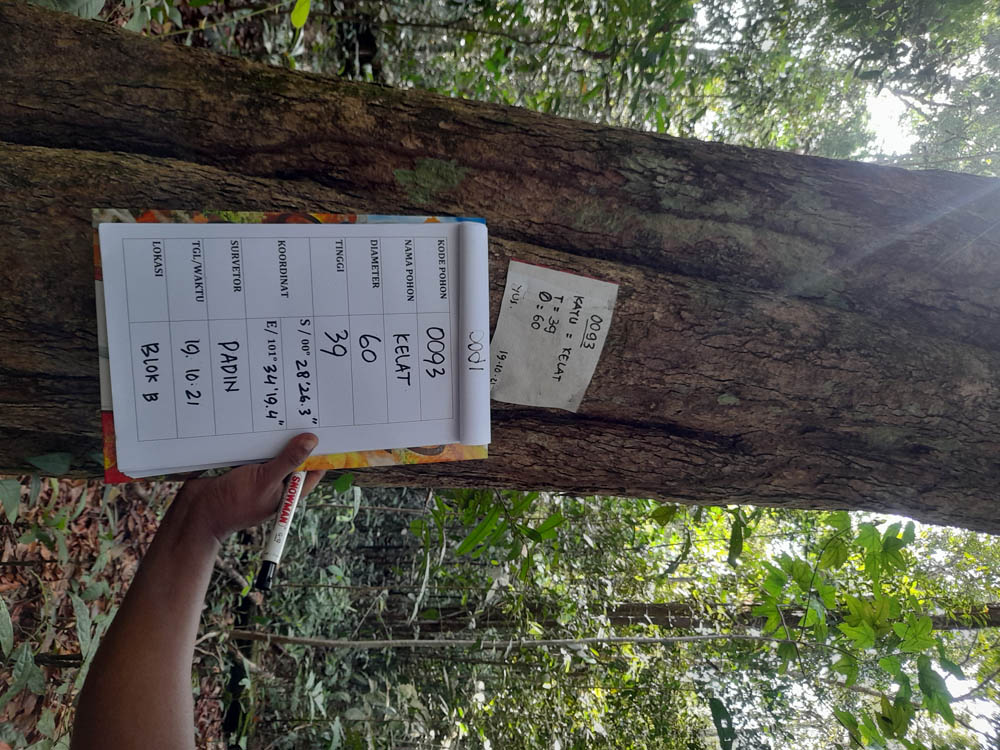 0093
KAYU = KELAT
T = 39
Ø = 60
YUS. 19.10.21
KODE POHON 0093
NAMA POHON KELAT
DIAMETER 60
TINGGI 39
KOORDINAT S / 00° 28'26.3"
E/ 101° 34'19.4"
SURVETOR DADIN
TGL/WAKTU 19.10.21
LOKASI BLOK B
SNOWMAN